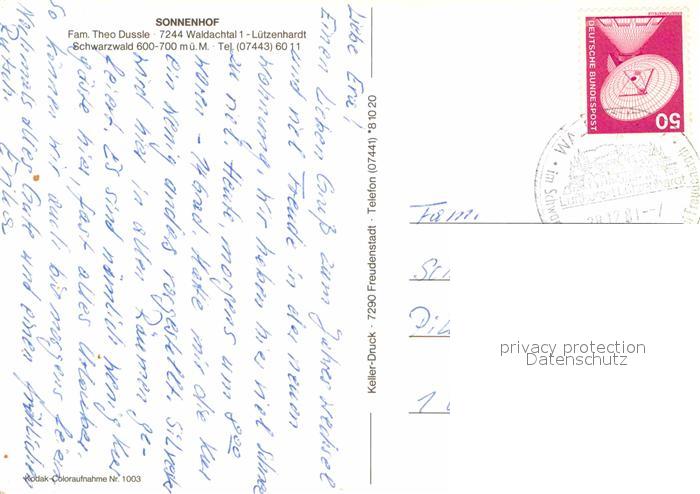 SONNENHOF
Fam. Theo Dussle · 7244 Waldachtal 1 - Lützenhardt
Schwarzwald 600-700 m ü. M. · Tel. (07443) 60 11
Liebe Eri!
Einen lieben Gruß zum Jahreswechsel
und viel Freude in der neuen
Wohnung. Wir haben hier viel Schnee
zu viel. Heute, morgens um 8 00
waren - 14 Grad Habe mir die Kur
ein wenig anders vorgestellt. Silvester
wird hier in allen Räumen ge-
feiert. Es sind nämlich wenig Kur
gäste hier, fast alles Urlauber.
So können wir auch bis morgens feiern
Nochmals alles Gute und einen fröhlichen
Rutsch.
Kodak-Coloraufnahme Nr. 1003
Keller-Druck · 7290 Freudenstadt · Telefon (07441) *81020
DEUTSCHE BUNDESPOST
50
28.12.81-
Fam.
privacy protection
Datenschutz